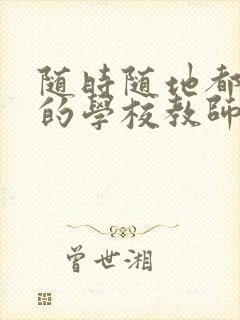 随時随地都
的學校教師
曾世湘